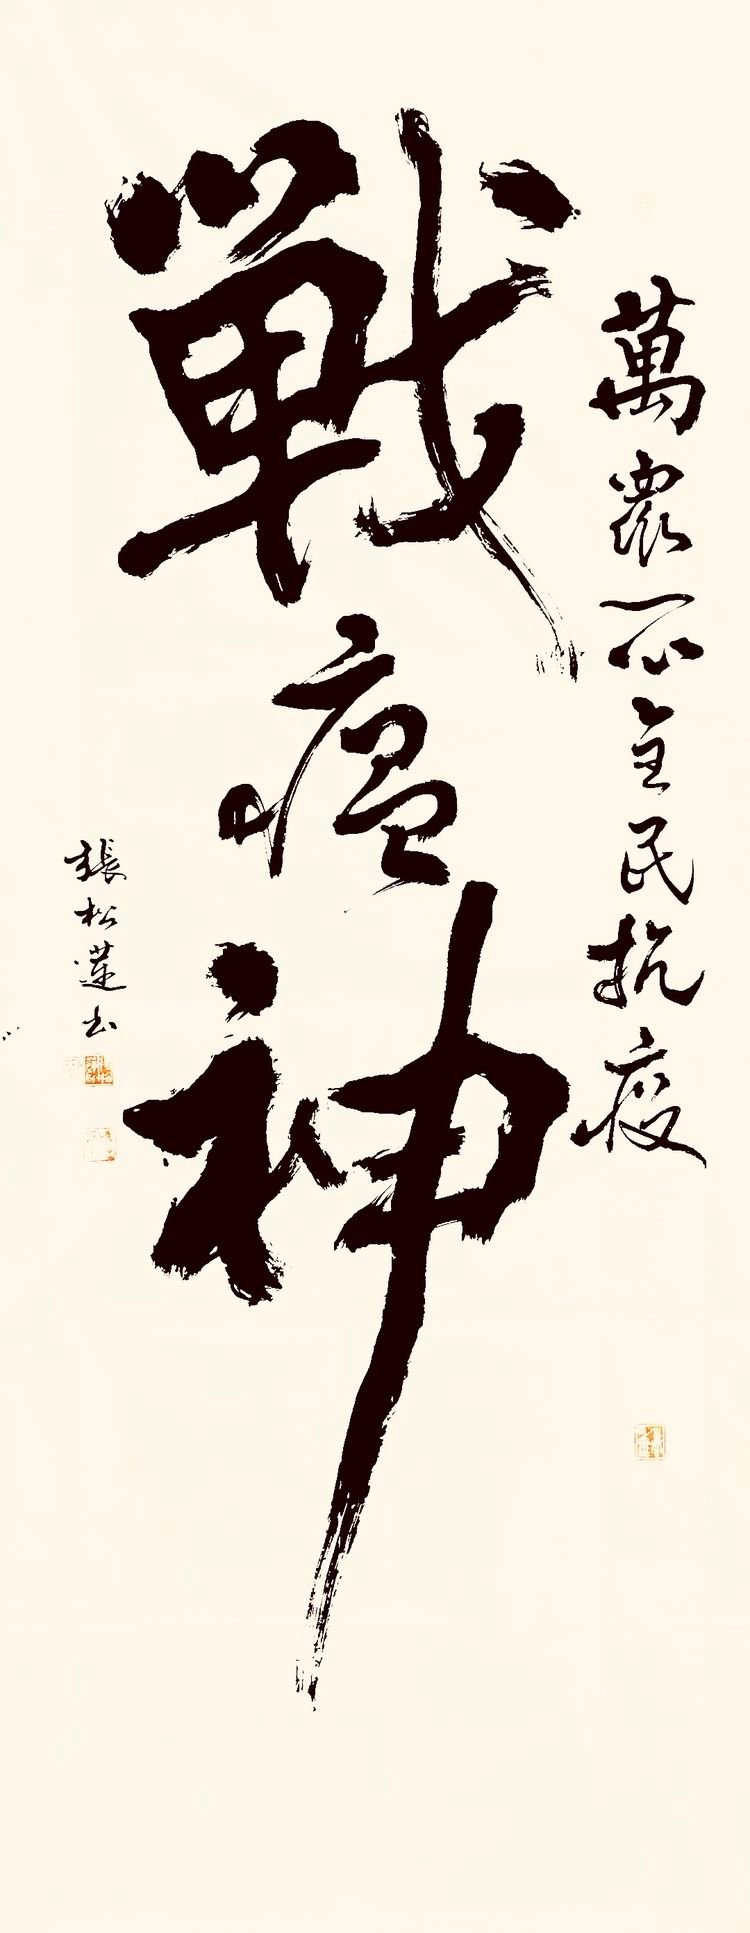 萬衆一心全民抗疫
戰瘟神
張松蓮书